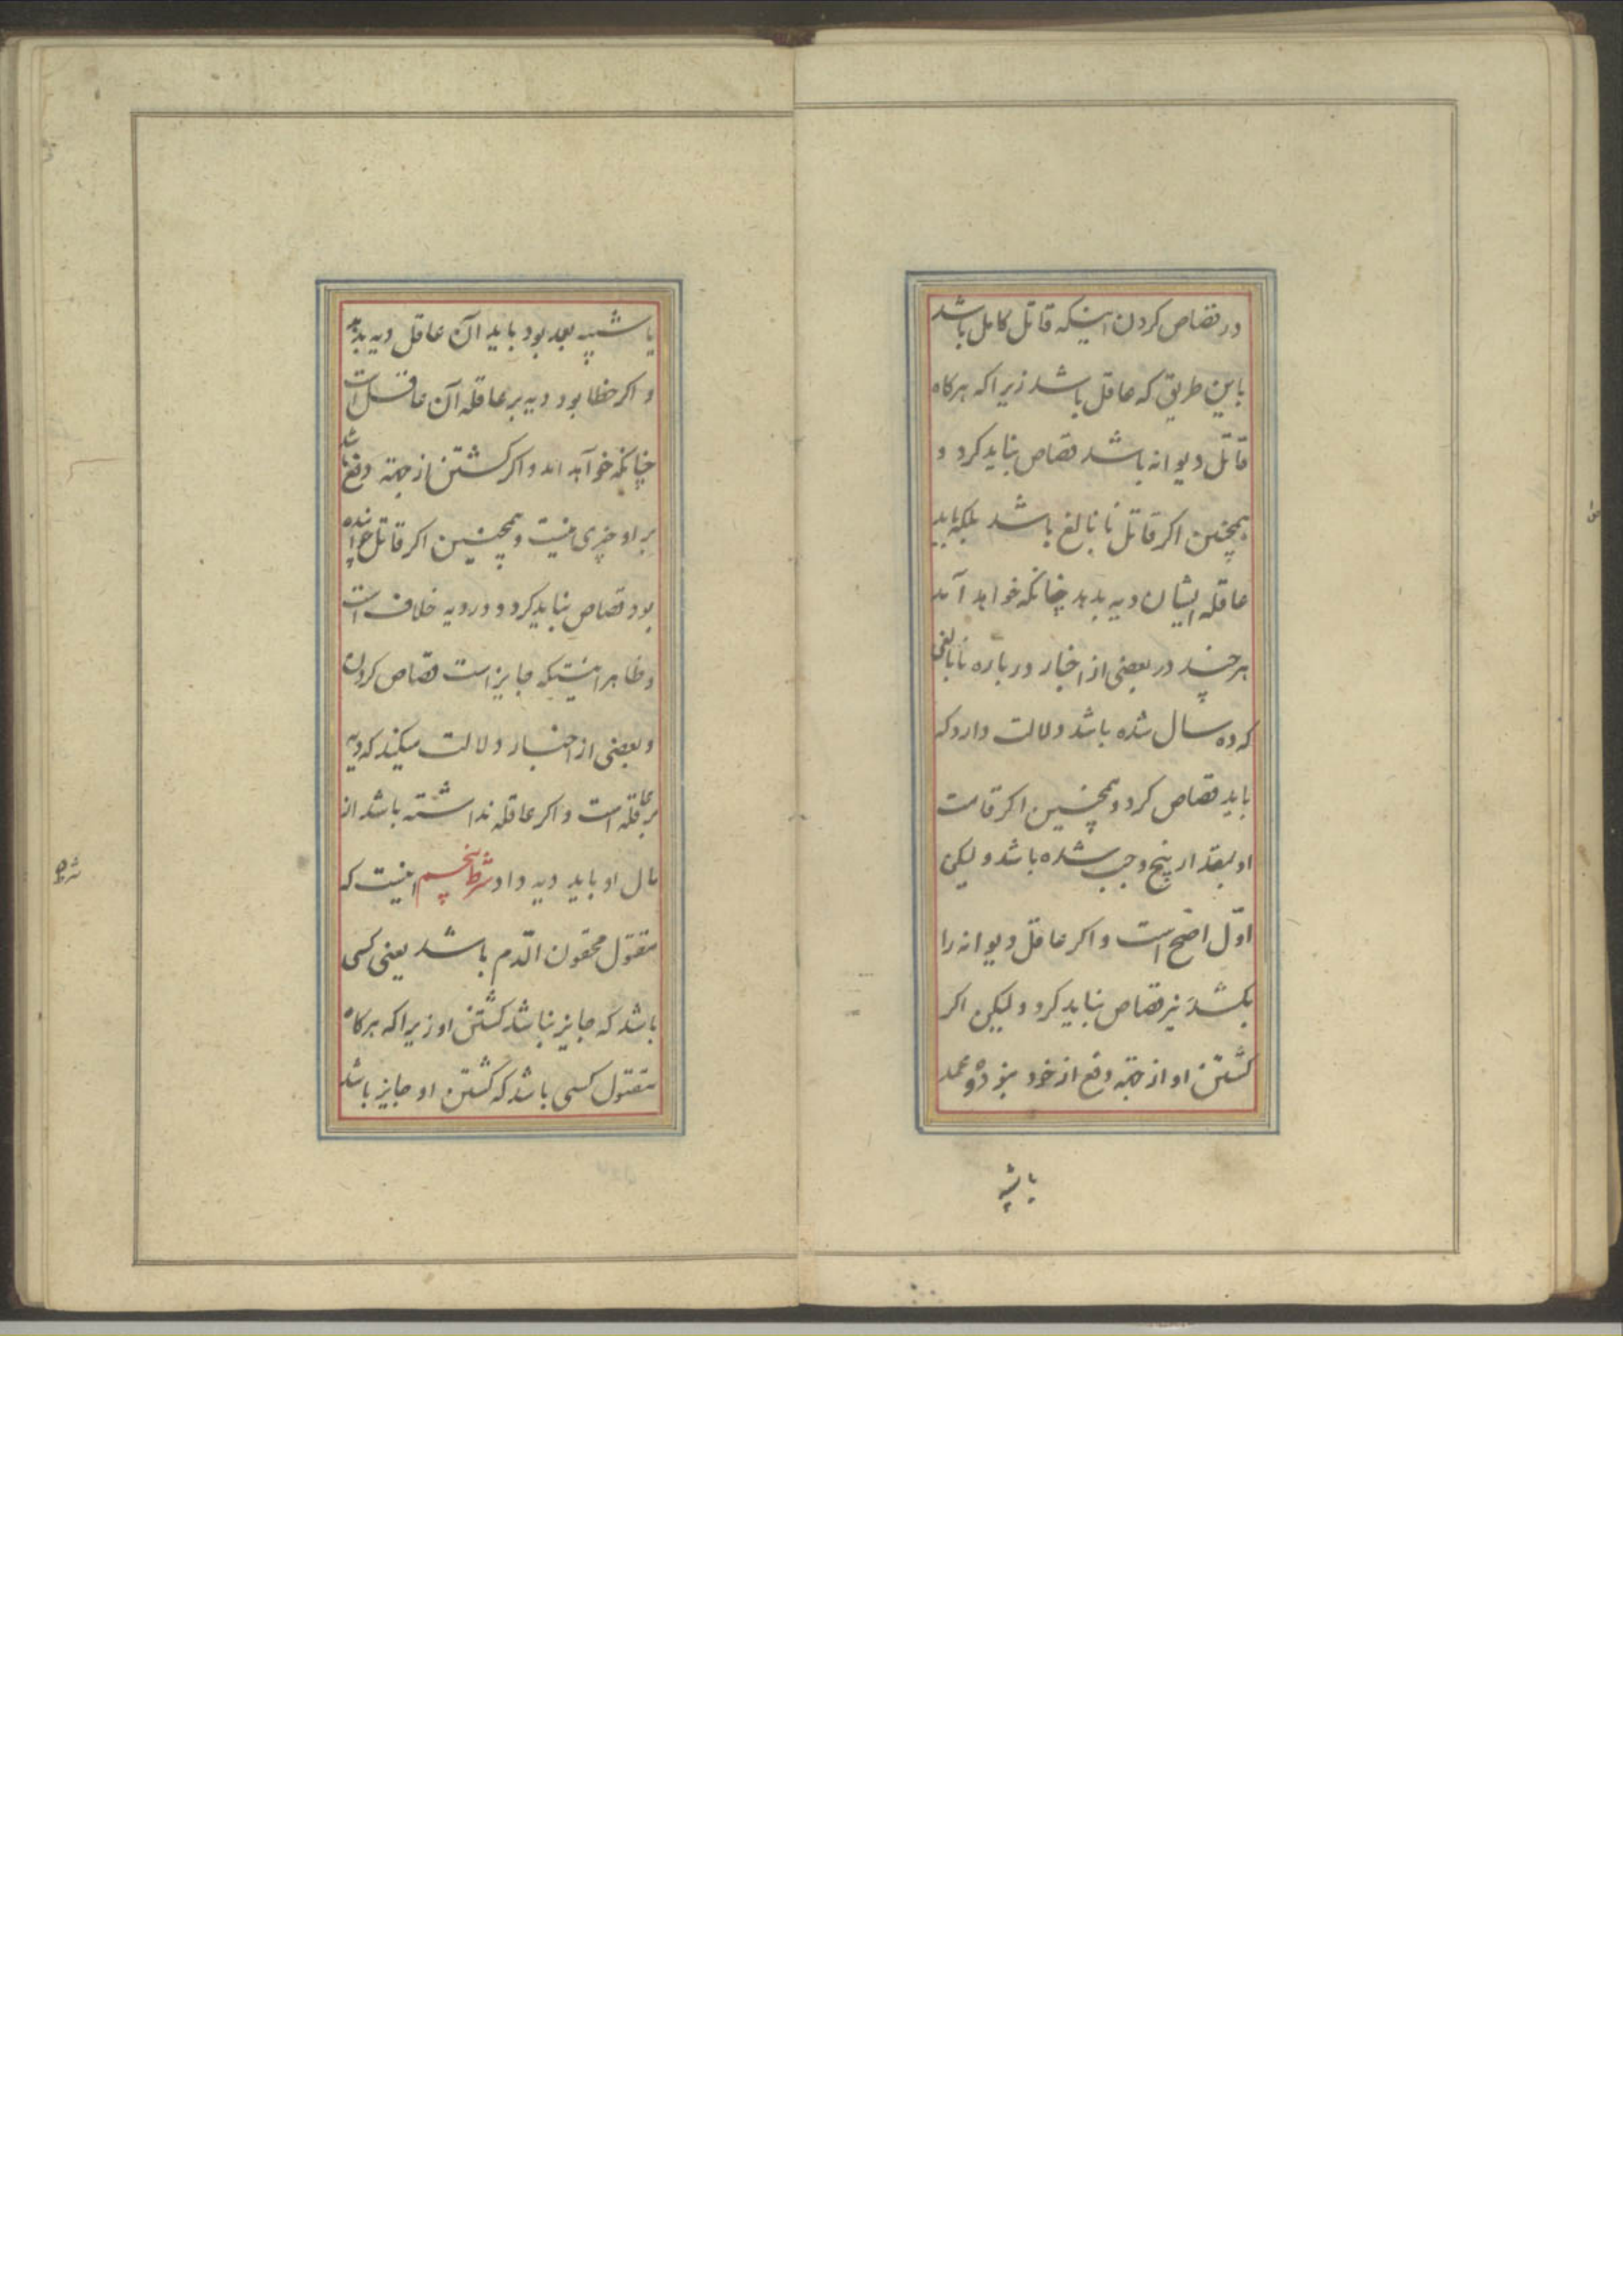 در قصاص کردن اینکه قاتل کامل باشد
باین طریق که عاقل باشد زیرا که هرکاه
قاتل دیوانه باشد قصاص نباید کرد و
همچنین اکر قاتل نابالغ باشد بلکه باید
عاقله ایشان دیه بدهد چنانکه خواهد آمد
هرچند در بعضی از اخبار درباره نابالغی
که ده سال شده باشد دلالت دارد که
باید قصاص کرد و همچنین اکر قامت
او بمقدار پنج وجب شده باشد ولیکن
اوّل اصّح است و اکر عاقل دیوانه را
بکشد نیز قصاص نباید کرد ولیکن اکر
کشتن او از جهته دفع از خود نبوده و عمد
یا شبه
یا شبیه بعمد بود باید آن عاقل دیه بدهد
و اکر خطا بود دیه بر عاقله آن عاقل است
چنانکه خواهد امد و اکر کشتن از جهته دفع باشد
بر او چیزی نیست و همچنین اکر قاتل خوابنده
بود قصاص نباید کرد و در دیه خلاف است
و ظاهر اینستکه جایز است قصاص کردن
و بعضی از اخبار دلالت میکند که دیه
بر عاقله است و اکر عاقله نداشته باشد از
مال او باید دیه داد شرط پنجم اینست که
مقتول محقون الدّم باشد یعنی کسی
باشد که جایز نباشد کشتن او زیرا که هرکاه
مقتول کسی باشد که کشتن او جایز باشد